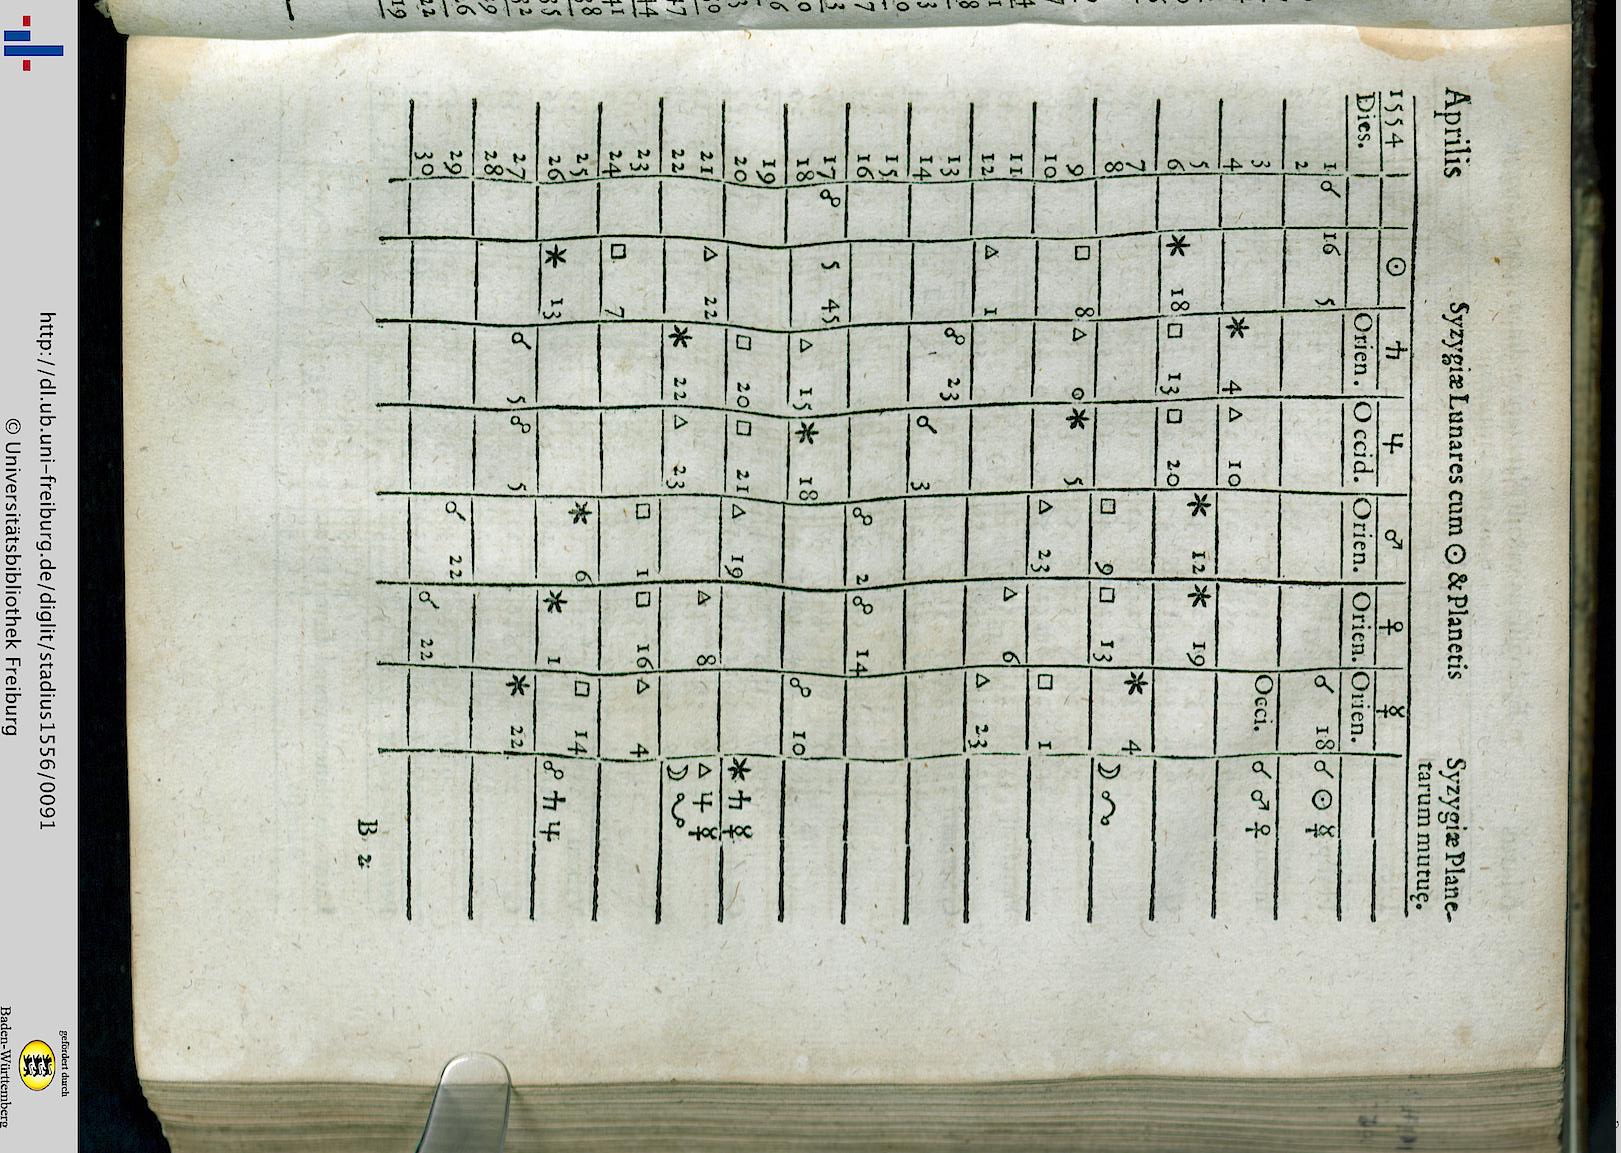 Aprilis Syzygiæ Lunares cum ☉ & Planetis Syzygiæ Plane-
tarum mutuę.
1554 ☉ ♄ ♃ ♂ ♀ ☿
Dies. Orien. Occid. Orien. Orien. Orien.
1 ☌ 16 5 ☌ 18 ☌ ☉ ☿
2
3 Occi. ☌ ♂ ♀
4 ✶ 4 △ 10
5 ✶ 12 ✶ 19
6 ✶ 18 □ 13 □ 20
7 ✶ 4
8 □ 9 □ 13 ☽ ☊
9 □ 8 △ 0 ✶ 5
10 △ 23 □ 1
11 △ 6
12 △ 1 △ 23
13 ☍ 23
14 ☌ 3
15
16 ☍ 2 ☍ 14
17 ☍ 5 45
18 △ 15 ✶ 18 ☍ 10
19
20 □ 20 □ 21 △ 19 ✶ ♄ ☿
21 △ 22 △ 8 △ ♃ ☿
22 ✶ 22 △ 23 ☽ ☋
23 □ 1 □ 16 △ 4
24 □ 7
25 ✶ 6 □ 14
26 ✶ 13 ✶ 1 ☍ ♄ ♃
27 ☌ 5 ☍ 5 ✶ 22
28
29 ☌ 22
30 ☌ 22
B 2
http://dl.ub.uni-freiburg.de/diglit/stadius1556/0091
© Universitätsbibliothek Freiburg
gefördert durch
Baden-Württemberg